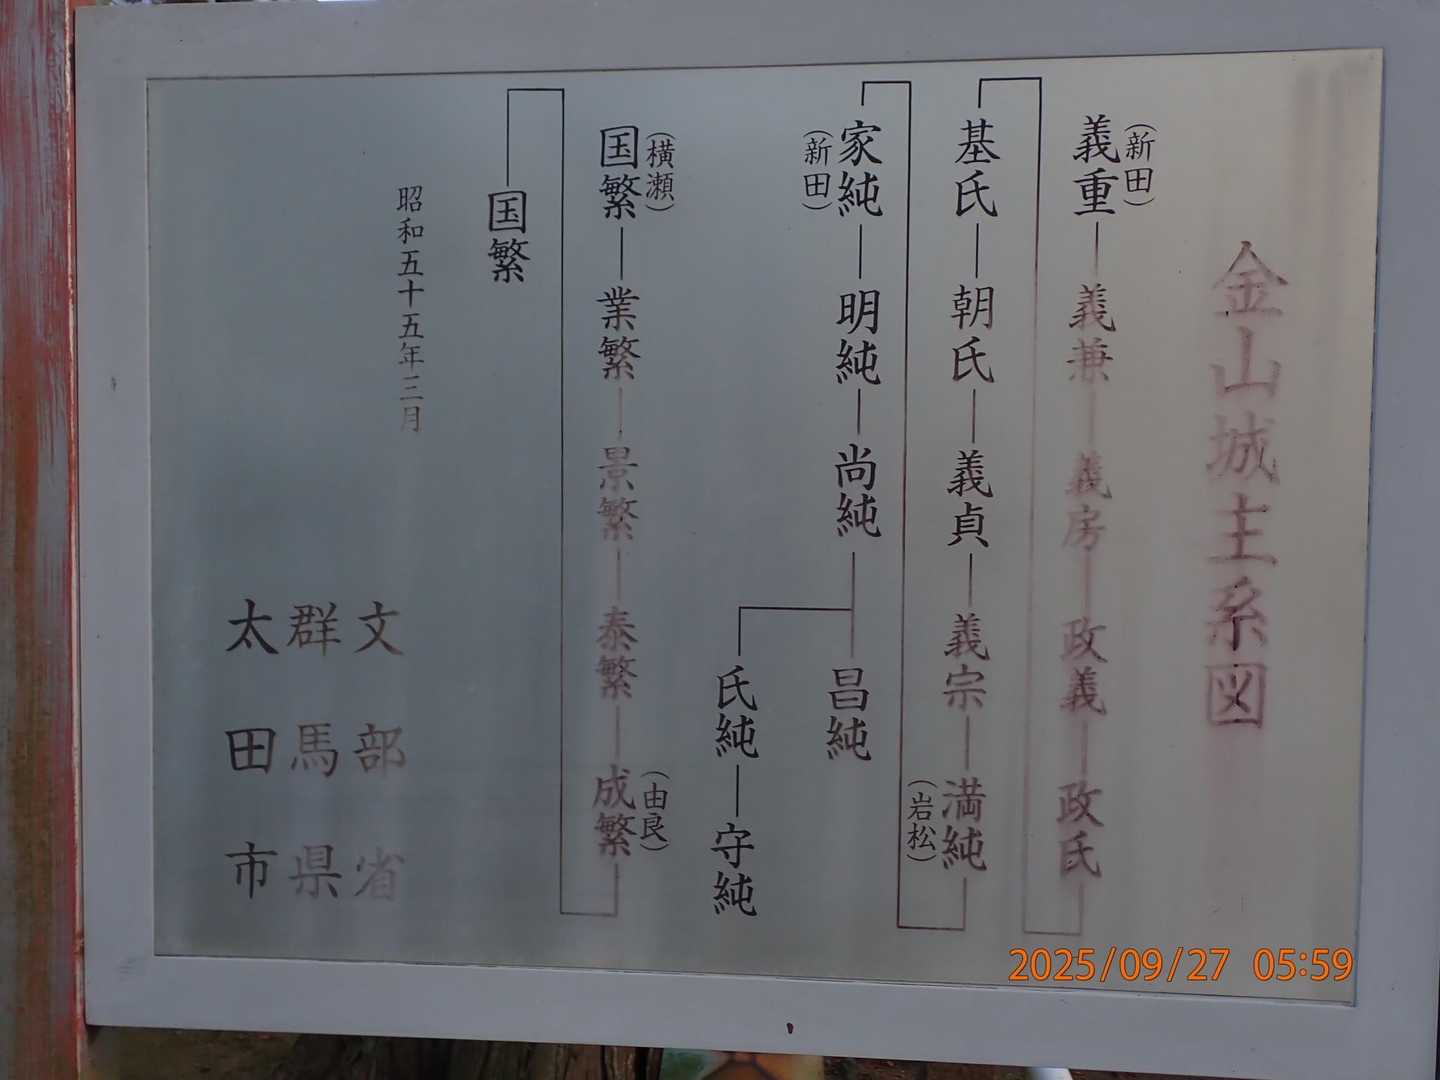 金山城主系図
(新田)
義重―義兼―義房―政義―政氏
基氏―朝氏―義貞―義宗―満純
(岩松)
家純―明純―尚純―昌純
(新田)
氏純―守純
(横瀬)
国繁―業繁―景繁―泰繁―成繁
(由良)
国繁
昭和五十五年三月
文部省
群馬県
太田市
2025/09/27 05:59